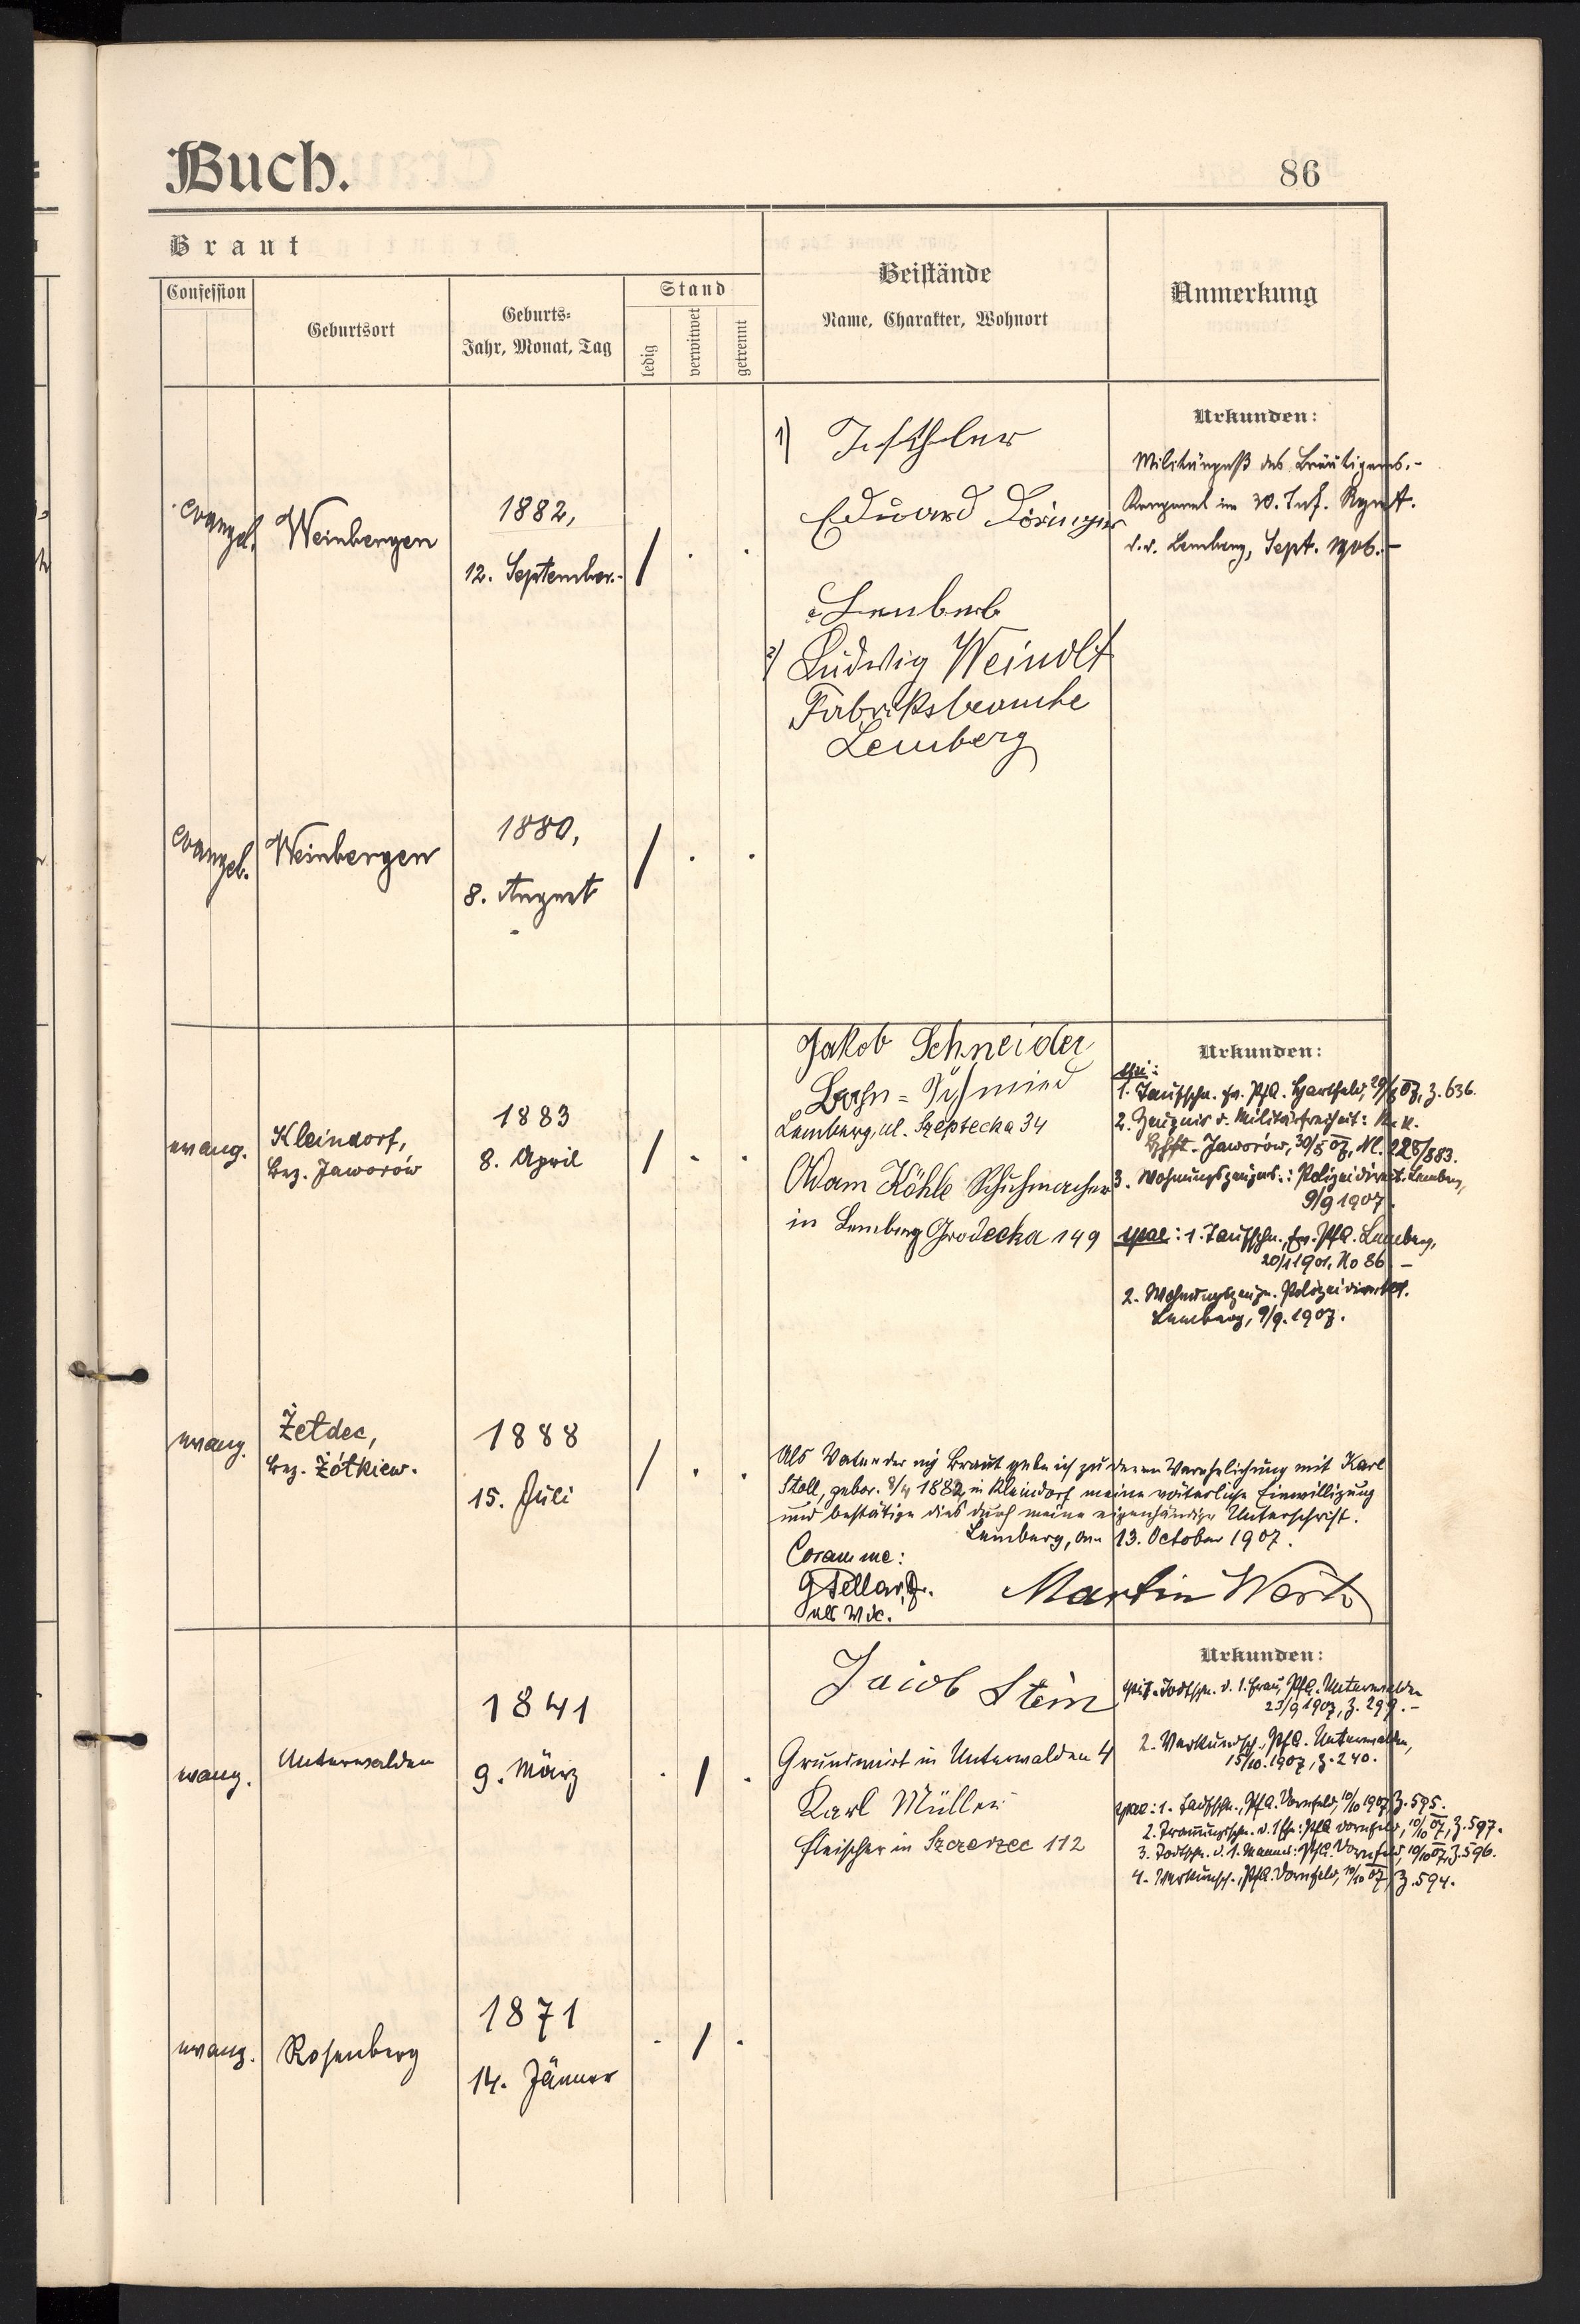 Buch.
86
Braut
Confession
Geburtsort
Geburts-
Jahr, Monat, Tag
Stand
ledig
verwitwet
getrennt
Beistände
Name, Charakter, Wohnort
Anmerkung
evangel.
Weinbergen
1882,
12. September.-
1)
Eduard
2) Ludwig Weindlt
Fabriksbeamte
Lemberg
Urkunden:
Militärpaß des Bräutigams.-
Korporal im 30. Inf. Rgmt.
d.d. Lemberg, Sept. 1906.-
evangel.
Weinbergen
1880,
8. August
evang.
Kleindorf,
Bez. Jaworów
1883
8. April
Jakob Schneider
Schmied
Lemberg, ul. Szeptecka 34
Adam Köhle Schuhmacher
in Lemberg Grodecka 149
Urkunden:
1. Taufschn. ev. Pfa. Hartfeld, Z. 636.
2. Zeugnis d. Militärfreiheit: K.k.
Bhft. Jaworów, 30/5 07, Nl. 228/883.
3. Wohnungszeugns.: Polizeidirect. Lemberg,
9/9 1907.
1. Taufschn. ev. Pfa. Lemberg,
20/1 1901, No 86.-
2. Wohnungszeugn. Polizeidirect.
Lemberg, 9/9. 1907.
evang.
Żełdec,
Bez. Żółkiew.
1888
15. Juli
Als Vater der Braut gebe ich zu deren Verehelichung mit Karl
Stoll, gebor. 8/4 1882 in Kleindorf meine väterliche Einwilligung
und bestätige dies durch meine eigenhändige Unterschrift.
Lemberg, am 13. October 1907.
Coram me:
als Vic.
Martin
evang.
Unterwalden
1841
9. März
Jacob Stein
Grundwirt in Unterwalden 4
Karl Müller
Fleischer in Szczerzec 112
Urkunden:
Todtschn. d. 1. Frau, Pfa. Unterwalden
23/9 1907, Z. 299.-
2. Verkündsch., Pfa. Unterwalden,
15/10. 1907, Z. 240.
1. Taufschn., Pfa. Dornfeld, 10/10 1907, Z. 595.
2. Trauungsschn. d. 1. Ehe: Pfa. Dornfeld, 10/10 07, Z. 597.
3. Todtschn. d. 1. Mannes: Pfa. Dornfeld, 10/10 07, Z. 596.
4. Verkündsch., Pfa. Dornfeld, 10/10 07, Z. 594.
evang.
Rosenberg
1871
14. Jänner